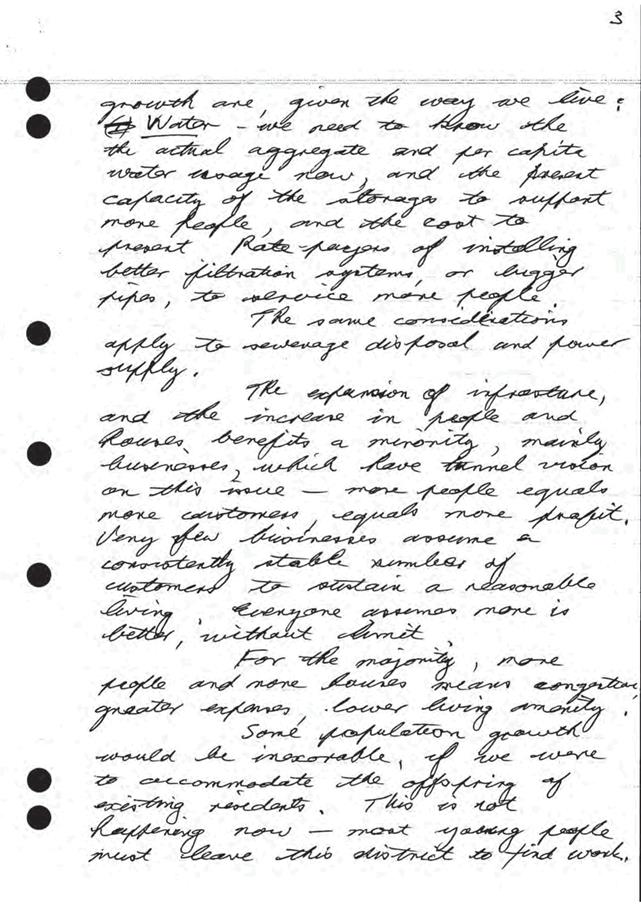 3
growth are, given the way we live:
(1) Water - we need to know the
the actual aggregate and per capita
water usage now, and the present
capacity of the storages to support
more people, and the cost to
present Rate-payers of installing
better filtration systems, or bigger
pipes, to service more people.
The same considerations
apply to sewerage disposal and power
supply.
The expansion of infrasture,
and the increase in people and
houses, benefits a minority, mainly
businesses, which have tunnel vision
on this issue — more people equals
more customers, equals more profit.
Very few businesses assume a
consistently stable number of
customers to sustain a reasonable
living. Everyone assumes more is
better, without limit.
For the majority, more
people and more houses means congestion,
greater expenses, lower living amenity.
Some population growth
would be inexorable, if we were
to accommodate the offspring of
existing residents. This is not
happening now — most young people
must leave this district to find work.